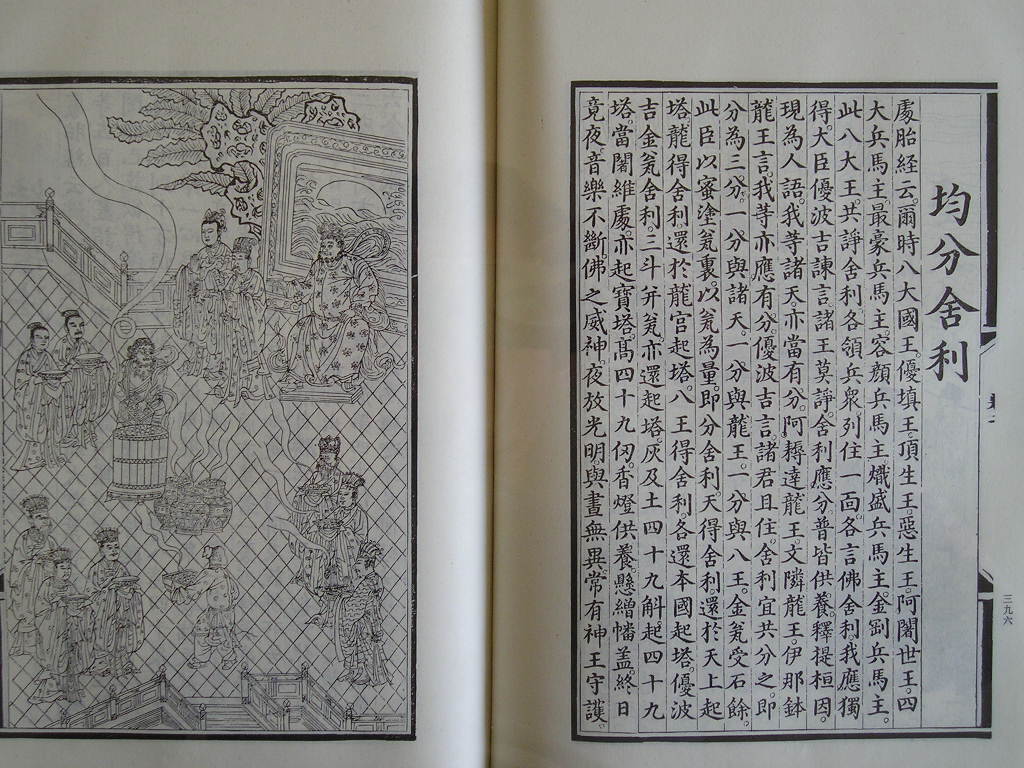 均分舍利
處胎經云。爾時八大國王。優填王。頂生王。惡生王。阿闍世王。四
大兵馬主。最豪兵馬主。容顏兵馬主。熾盛兵馬主。金剛兵馬主。
此八大王。共諍舍利。各領兵眾。列住一面。各言佛舍利。我應獨
得。大臣優波吉諫言。諸王莫諍。舍利應分。普皆供養。釋提桓因。
現為人語。我等諸天。亦當有分。阿耨達龍王。文隣龍王。伊那鉢
龍王言。我等亦應有分。優波吉言。諸君且住。舍利宜共分之。即
分為三分。一分與諸天。一分與龍王。一分與八王。金瓮受石餘。
此臣以蜜塗瓮裏。以瓮為量。即分舍利。天得舍利。還於天上起
塔。龍得舍利。還於龍宮起塔。八王得舍利。各還本國起塔。優波
吉金瓮舍利。三斗并瓮。亦還起塔。灰及土四十九斛。起四十九
塔。當闍維處。亦起寶塔。高四十九仞。香燈供養。懸繒幡蓋。終日
竟夜。音樂不斷。佛之威神。夜放光明。與晝無異。常有神王守護。
三九六